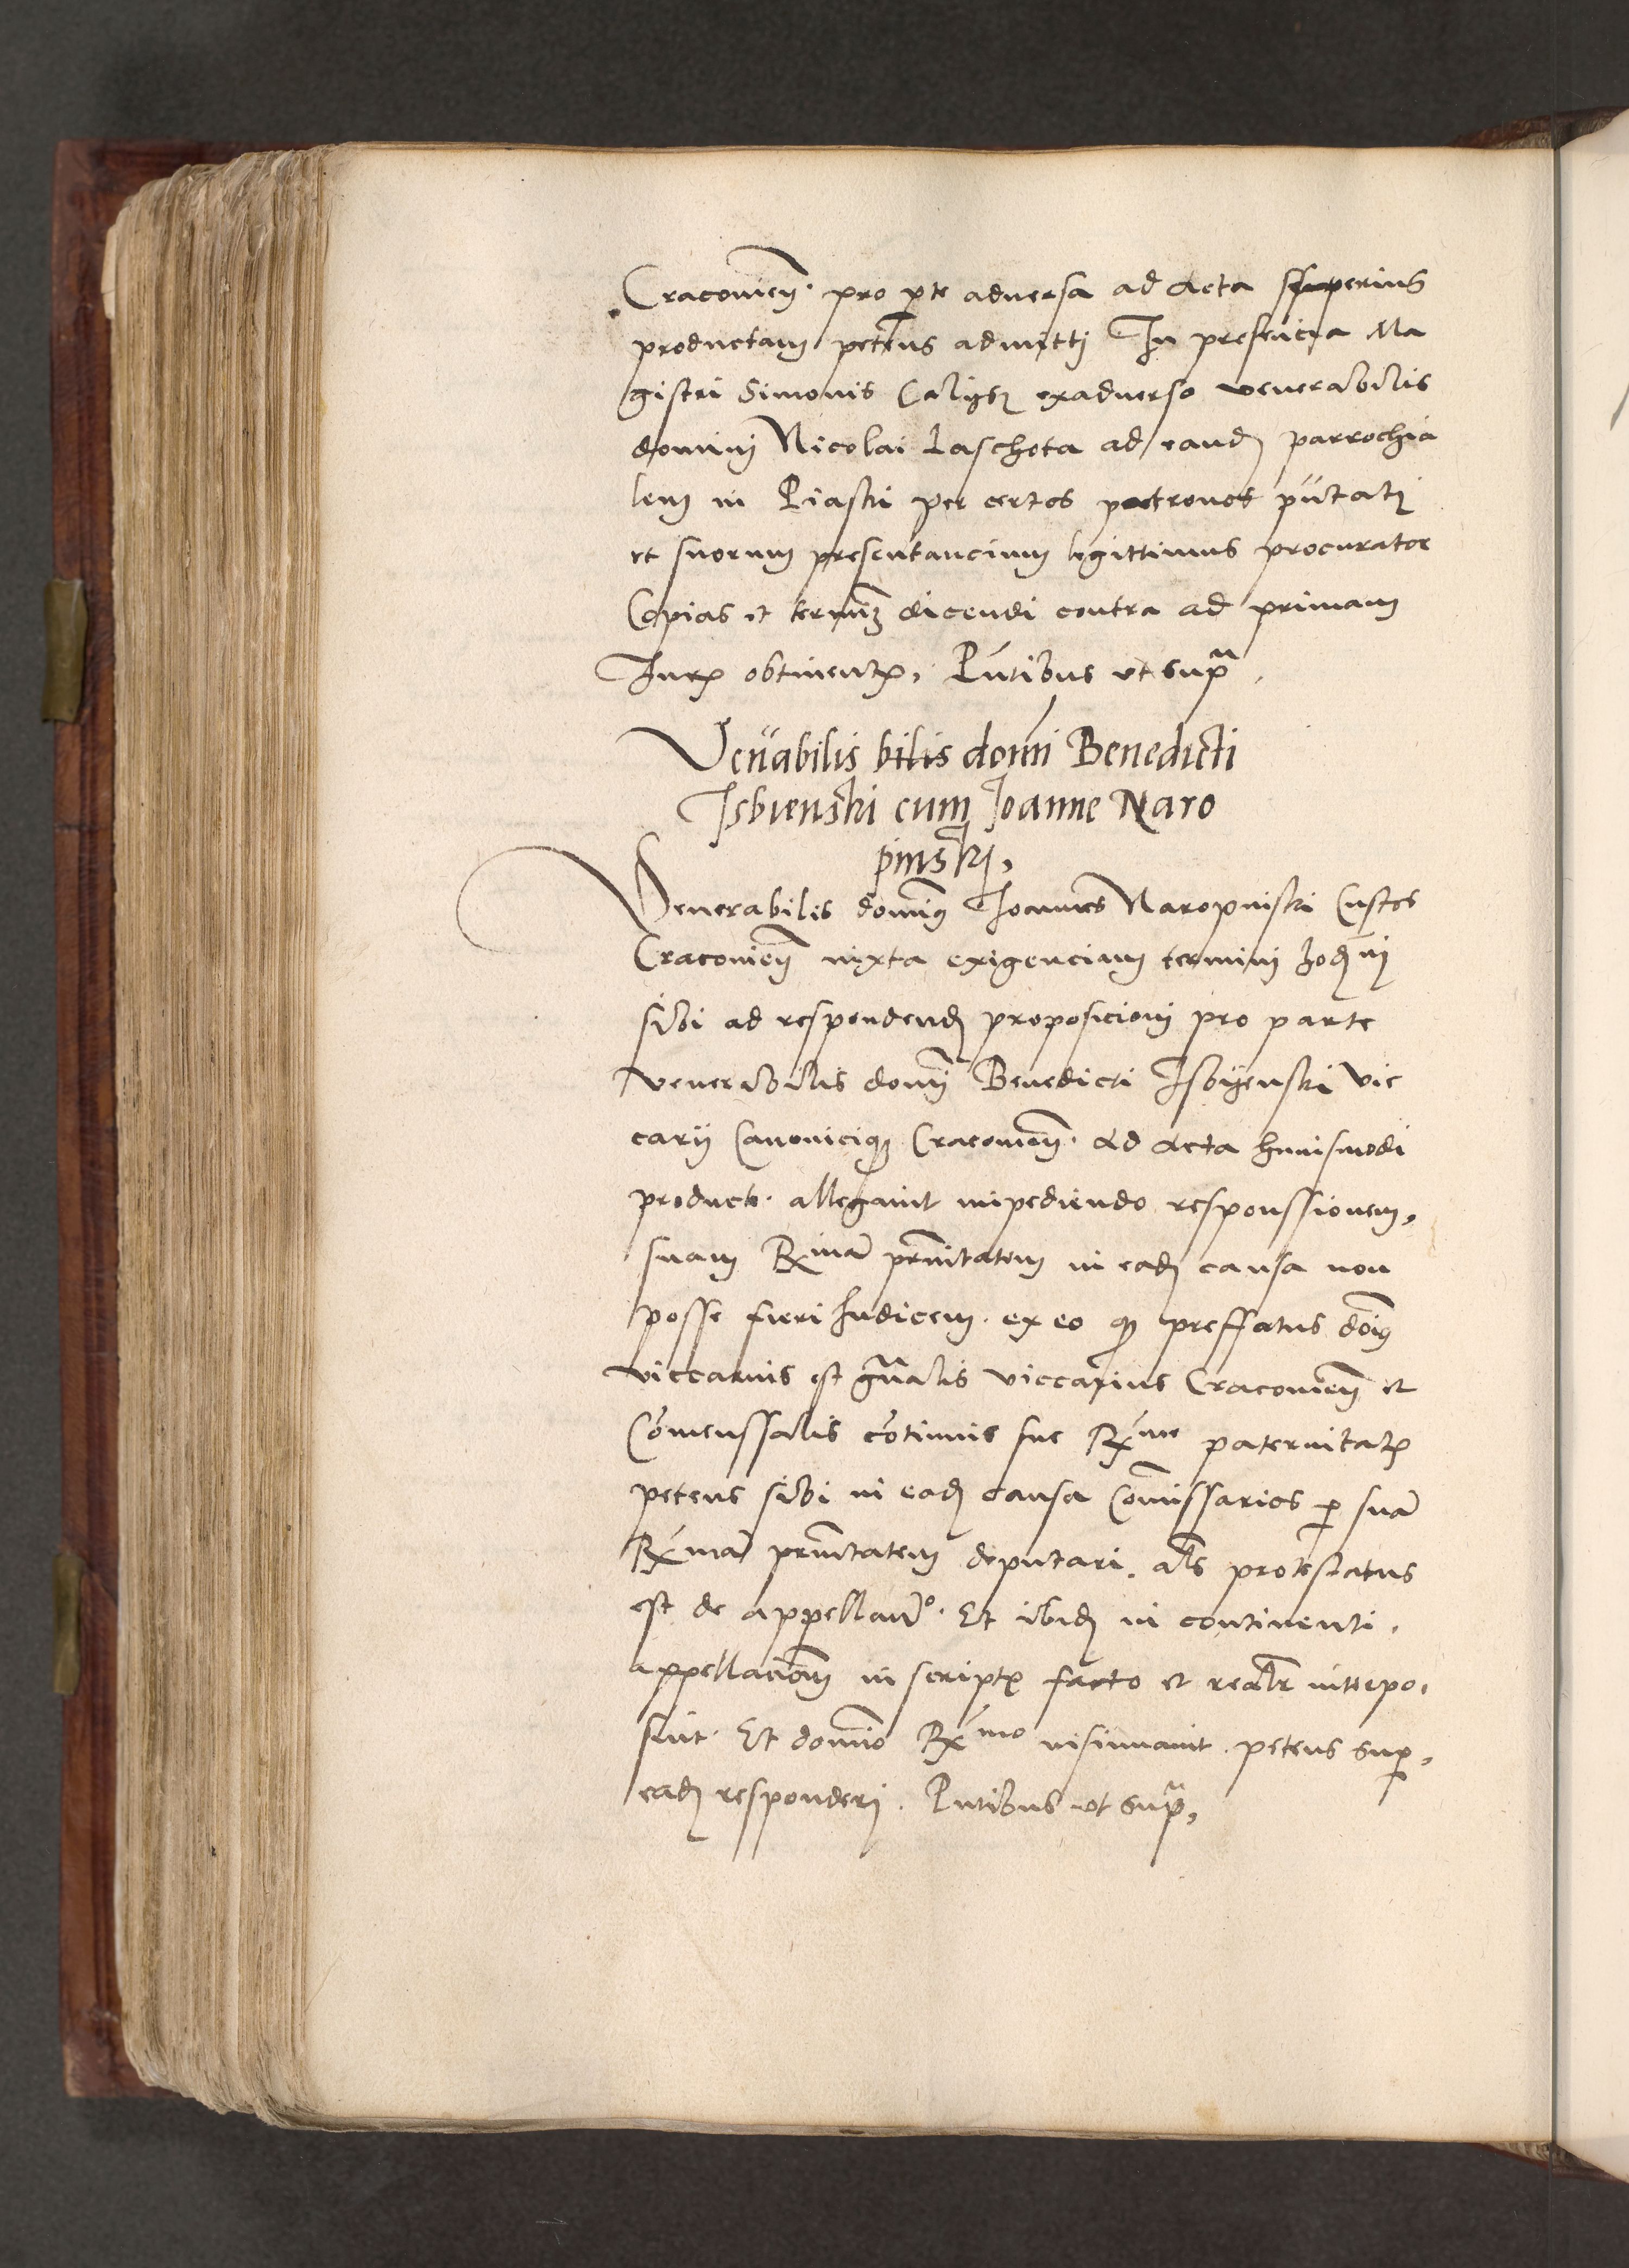 Cracovien̄. pro ꝑte adversa ad Acta superius
productam petens admitti In presencia Ma
gistri Simonis exadverso venerabilis
domini Nicolai Laschota ad eand parrochia
lem in Piaski per certos patronos pn̄tati
et suorum presentancium legittimus procurator
Copias et termin̄ dicendi contra ad primam
Juris obtinentis. Pn̄tibus ut sup̄
Ven̄abilis bilis domi Benedicti
Isbienski cum Joanne Naro
pinski,
Venerabilis domin̄ Joannes Naropinski Custos
Cracovien̄ iuxta exigencium termini hodie
sibi ad respondend proposicioni pro parte
venerabilis domi Benedicti Isbijenski Vic
carij Canoniciqꝫ Cracovien̄. Ad Acta huiusmodi
producte. allegavit impediendo responssionem,
suam Rx̄ma pr̄nitatem in ead causa non
posse fieri Judicem. ex eo qꝫ preffatus dom̄
viccarius est gn̄alis viccarius Cracovien̄ et
Cōmenssalis cōtinuus sue Rx̄me paternitatis
petens sibi in ead causa Com̄issarios ꝑ suā
Rx̄mā pr̄nitatem deputari. als protestatus
est de appellan̄o. Et ibid in continenti.
appellacion̄ in scriptis facto et realr̄ interpo,
suit. Et domino Rx̄mo insinuavit. petens sup,
ead responderj. Pn̄tibus ut sup̄,